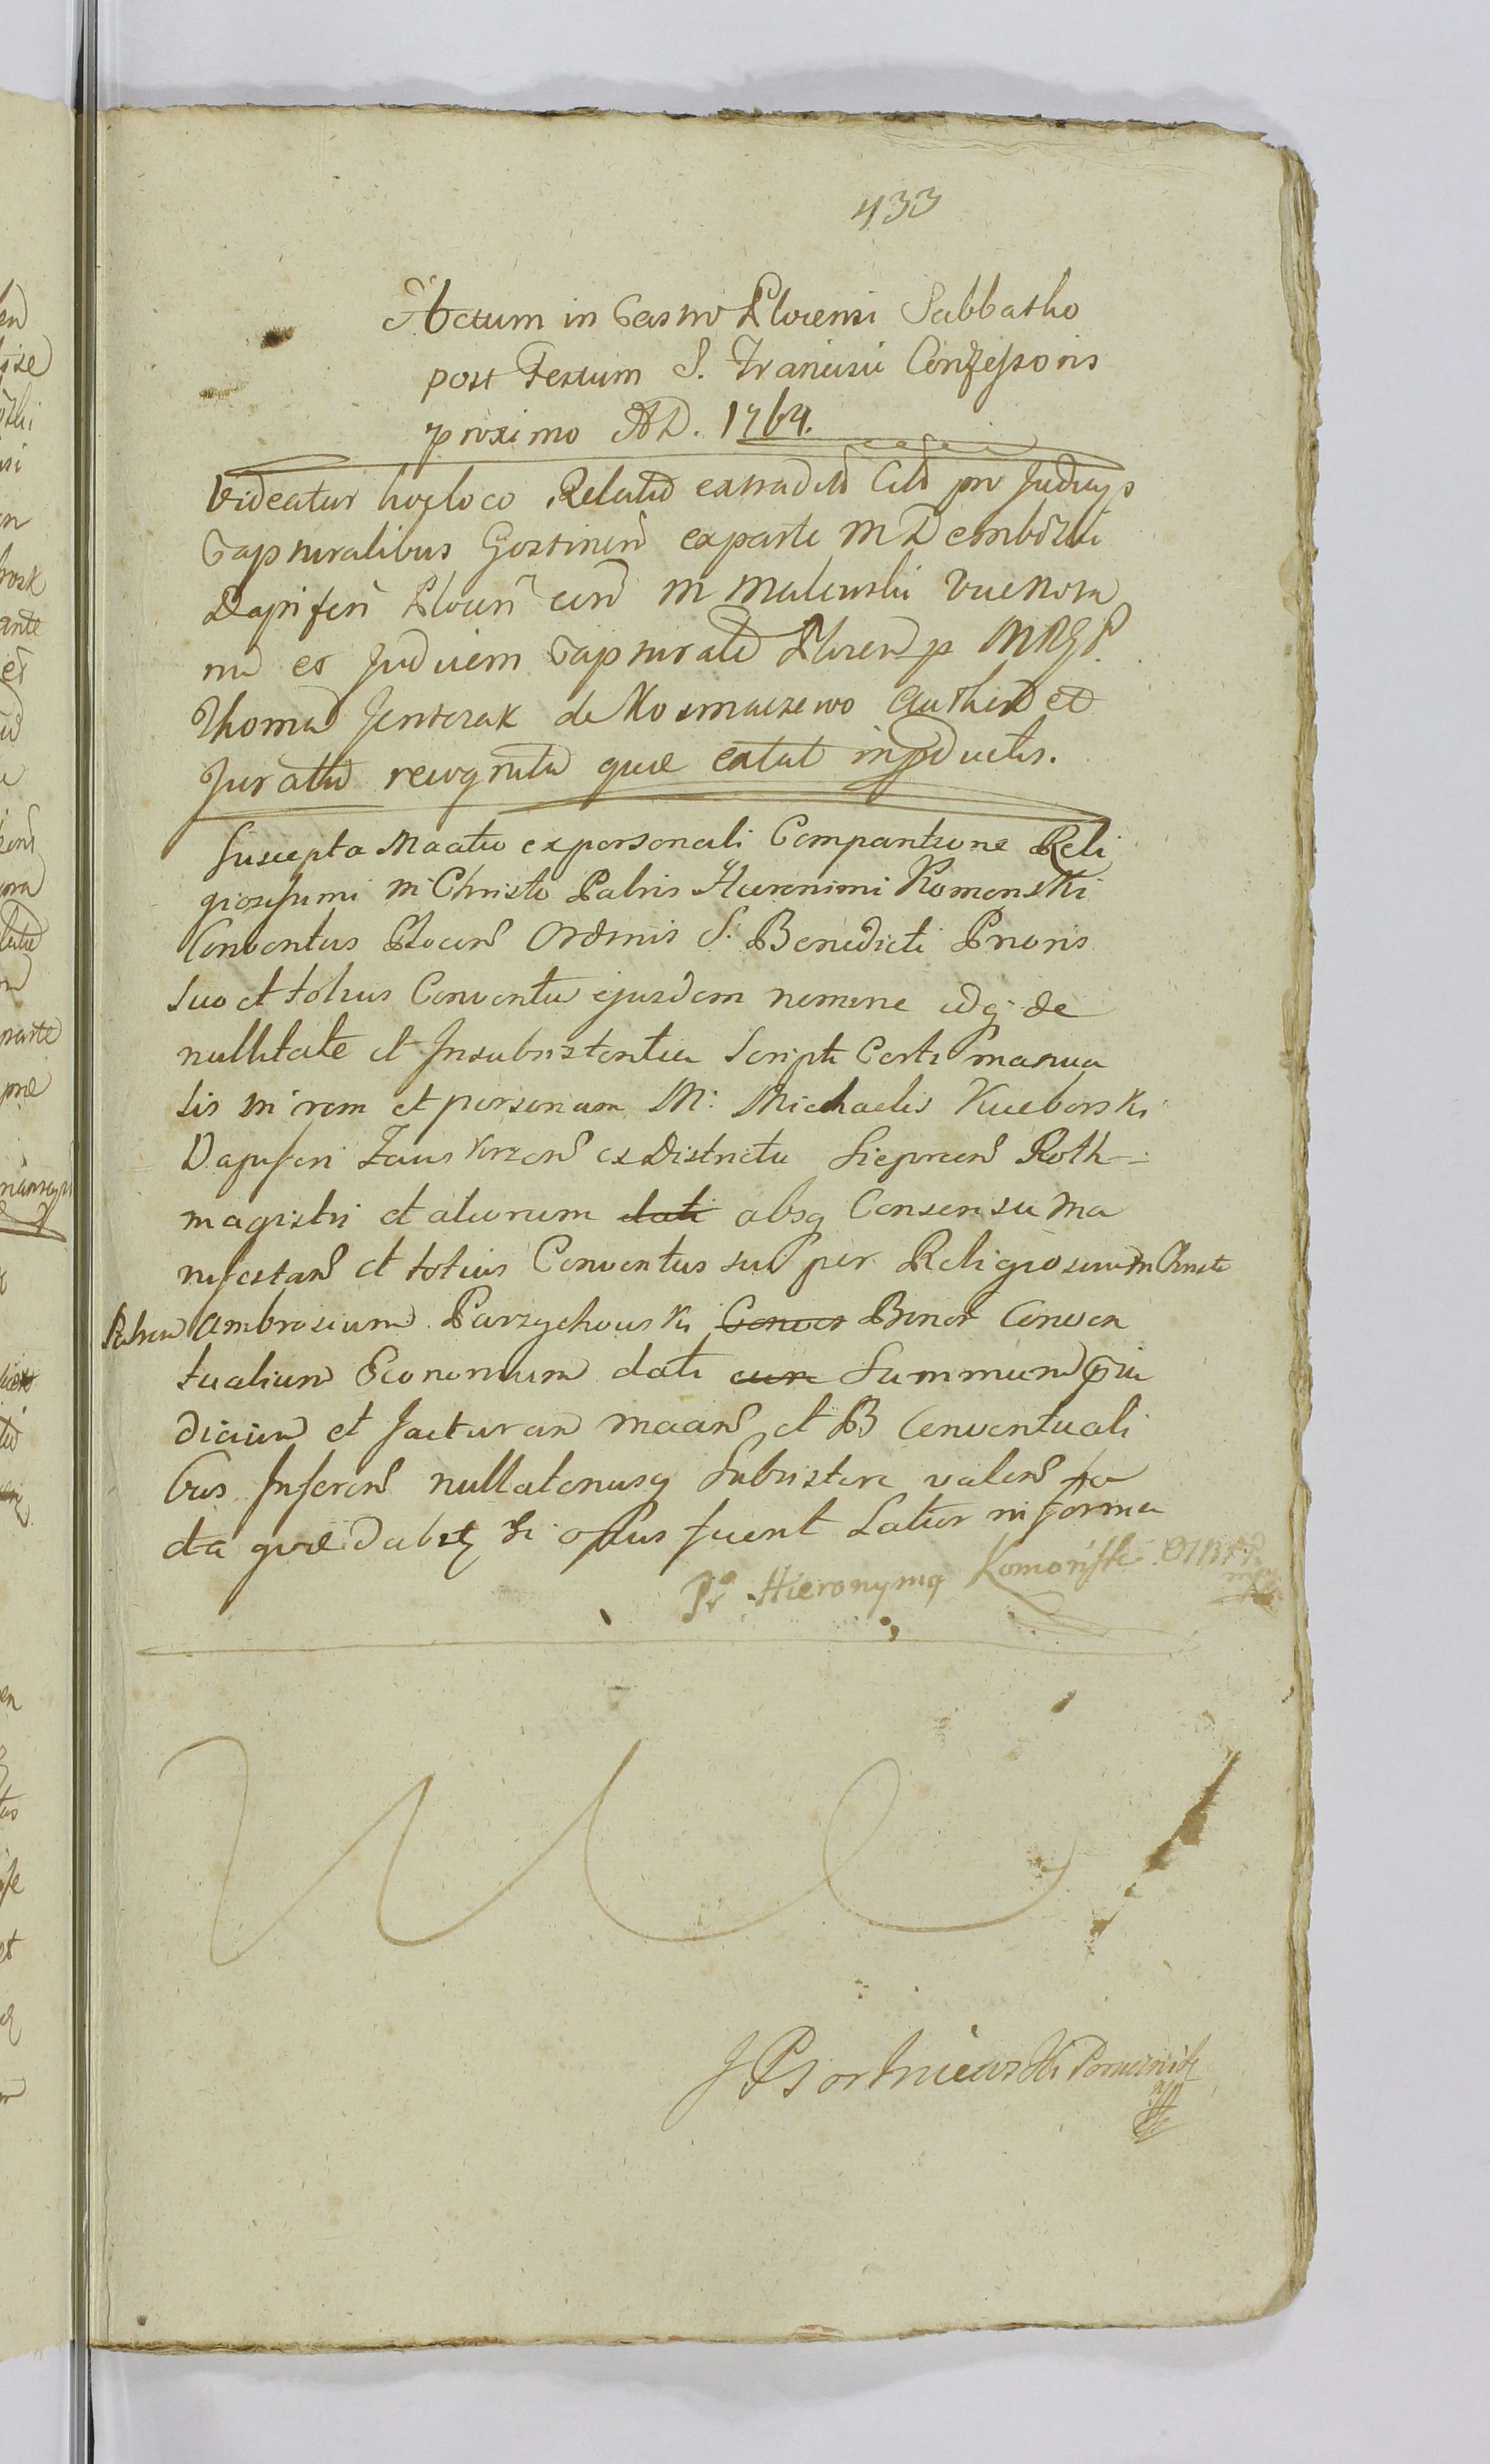 433
Actum in Castro Plocensi Sabbatho
post Festum S. Francisci Confessoris
proximo AD. 1764.
Videatur hocloco Relatio extradit Cit pro Judicijs
Capturalibus Gostinen exparte M Dembozki
Dapiferi Plocen con M Malewski
et Judicem Capturale Plocen p
Thoma Jentczak de authen et
Juratu recognita quae extat inproductis.
Suscepta Maatio expersonali Comparitione Reli
giosissimi in Christo Patris Hieronimi Komenski
Conventus Plocens Ordinis S. Benedicti Prioris
suo et totius Conventus ejusdem nomine idq de
nullitate et Insubsistentia Scripti Certi manua
lis in rem et personam M: Michaelis Kueborski
Dapiferi Zawskrzens ex Districtu Sieprcens Roth=
magistri et aliorum dati absq Consensu Ma
nifestans et totius Conventus sui per Religiosum in Christo
Patrem Ambrosium Parzychowski Conven Bonor Conven
tualium Economum dati cum Summum prju
dicium et Jacturam maans et B Conventuali
bus Inferens nullatenusq Subsistere valens fa
cta quae dabit si opus fuerit Latior in forma
Pr Hieronymq Komoński OSBPP